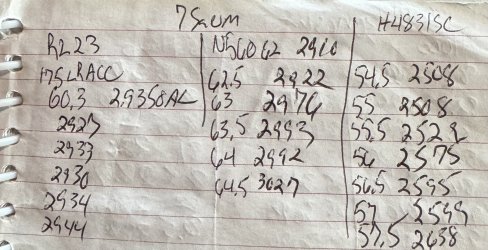 7Saum
RL23
175LRACC
60,3 2,9358AL
2927
2933
2930
2934
2944
N560 62 2910
62,5 2922
63 2976
63,5 2993
64 2992
64,5 3027
H4831SC
54,5 2508
55 2508
55,5 2529
56 2575
56,5 2595
57 2599
57,5 2638